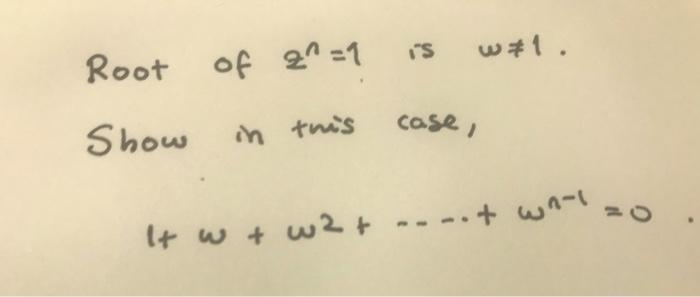 Root of zⁿ=1 is w≠1.
Show in this case,
1+ w + w² + -----+ wⁿ⁻¹ =0.